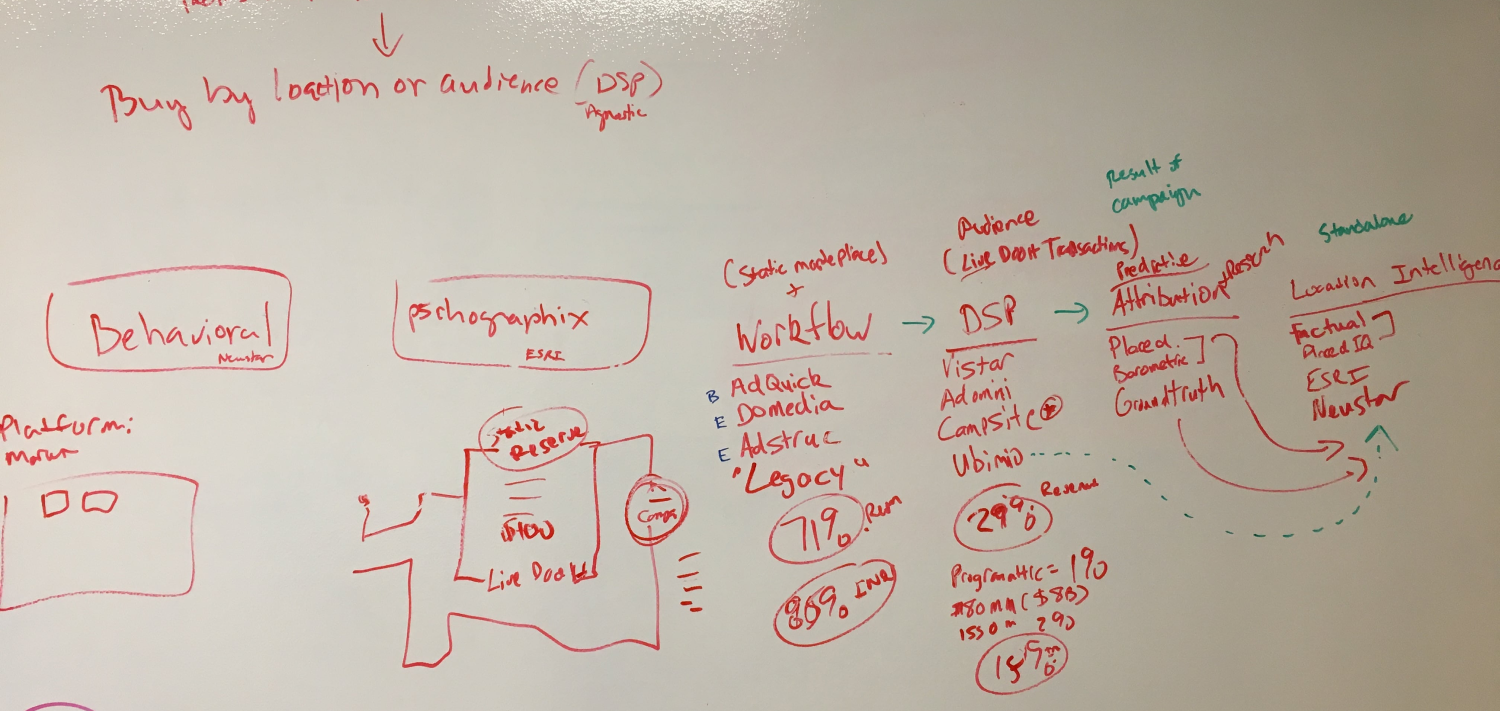 Buy by loaction or audience (DSP)
Agnostic
Behavioral
Neustar
pschographix
ESRI
Platform:
Reserve
$100
Live DooH
Comps
(Static marketplace)
+
Workflow
B AdQuick
E Domedia
E Adstruc
"Legacy"
71%
INR
Audience
(Live DooH Transactions)
DSP
Vistar
Adomni
Campsite
Ubimio
29% Revenue
Programattic = 1%
$80mm ($8B)
2%
Result of
campaign
Predictive
Attribution + Research
Placed
Barometric
Groundtruth
Standalone
Location Intelligenc
Factual
Placed IQ
ESRI
Neustar